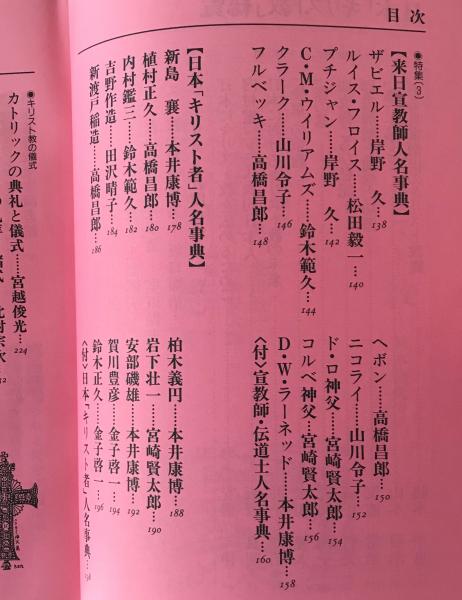 目次
●特集(3)
【来日宣教師人名事典】
ザビエル……岸野 久…138
ルイス・フロイス……松田毅一…140
プチジャン……岸野 久…142
C・M・ウイリアムズ……鈴木範久…144
クラーク……山川令子…146
フルベッキ……高橋昌郎…148
ヘボン……高橋昌郎…150
ニコライ……山川令子…152
ド・ロ神父……宮崎賢太郎…154
コルベ神父……宮崎賢太郎…156
D・W・ラーネッド……本井康博…158
〈付〉宣教師・伝道士人名事典…160
【日本「キリスト者」人名事典】
新島 襄……本井康博…178
植村正久……高橋昌郎…180
内村鑑三……鈴木範久…182
吉野作造……田沢晴子…184
新渡戸稲造……高橋昌郎…186
柏木義円……本井康博…188
岩下壮一……宮崎賢太郎…190
安部磯雄……本井康博…192
賀川豊彦……金子啓一…194
鈴木正久……金子啓一…196
〈付〉日本「キリスト者」人名事典…
●キリスト教の儀式
カトリックの典礼と儀式……宮越俊光…224